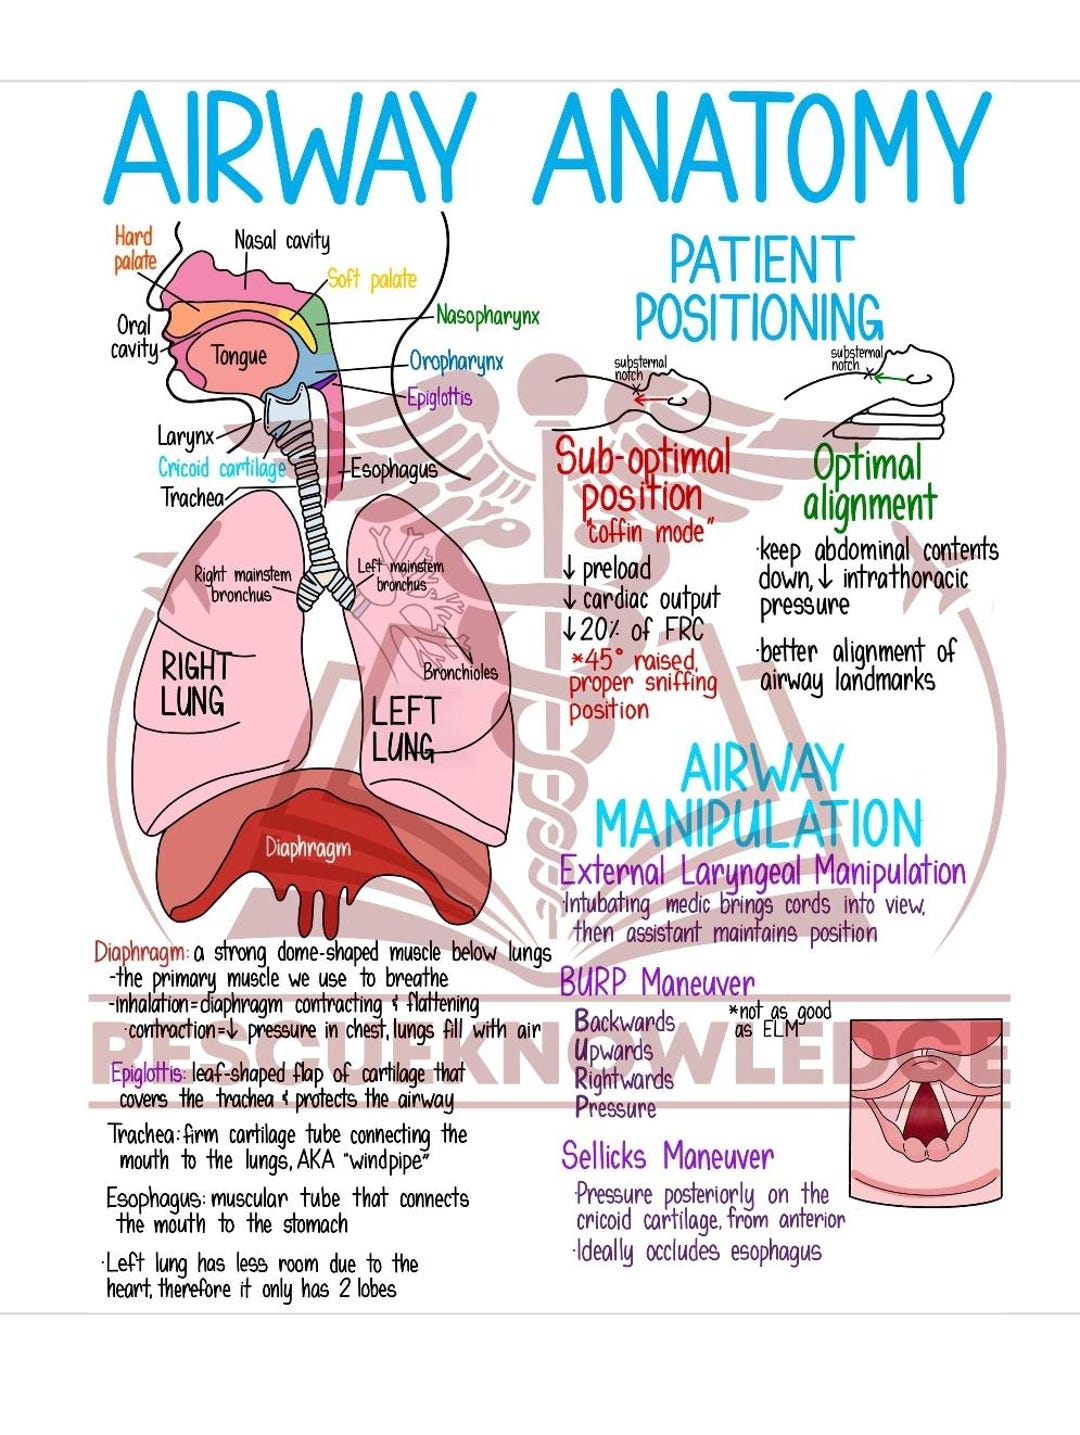 AIRWAY ANATOMY
Hard
palate
Nasal cavity
Soft palate
Oral
cavity
Tongue
Nasopharynx
Oropharynx
Epiglottis
Larynx
Cricoid cartilage
Trachea
Esophagus
Right mainstem
bronchus
Left mainstem
bronchus
RIGHT
LUNG
Bronchioles
LEFT
LUNG
Diaphragm
Diaphragm: a strong dome-shaped muscle below lungs
-the primary muscle we use to breathe
-inhalation=diaphragm contracting & flattening
·contraction=↓ pressure in chest, lungs fill with air
Epiglottis: leaf-shaped flap of cartilage that
covers the trachea & protects the airway
Trachea: firm cartilage tube connecting the
mouth to the lungs, AKA "windpipe"
Esophagus: muscular tube that connects
the mouth to the stomach
·Left lung has less room due to the
heart, therefore it only has 2 lobes
PATIENT
POSITIONING
substernal
notch
substernal
notch
Sub-optimal
position
"coffin mode"
↓ preload
↓ cardiac output
↓ 20% of FRC
*45° raised,
proper sniffing
position
Optimal
alignment
·keep abdominal contents
down, ↓ intrathoracic
pressure
·better alignment of
airway landmarks
AIRWAY
MANIPULATION
External Laryngeal Manipulation
·Intubating medic brings cords into view,
then assistant maintains position
BURP Maneuver
Backwards
Upwards
Rightwards
Pressure
*not as good
as ELM
Sellicks Maneuver
·Pressure posteriorly on the
cricoid cartilage, from anterior
·Ideally occludes esophagus
RESCUEKNOWLEDGE